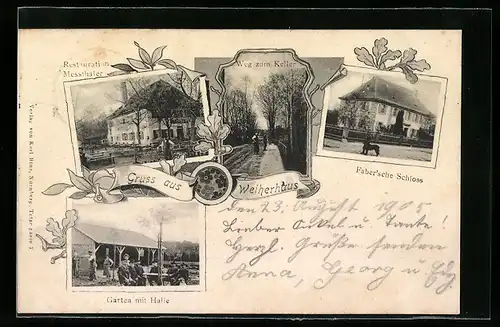 Restauration
Messthaler
Weg zum Keller
Faber'sche Schloss
Gruss aus
Weiherhaus
Garten mit Halle
den 23. August 1905
Lieber Onkel u. Tante!
Herzl. Grüße senden
Anna, Georg u.
Verlag von Karl Nürnberg,